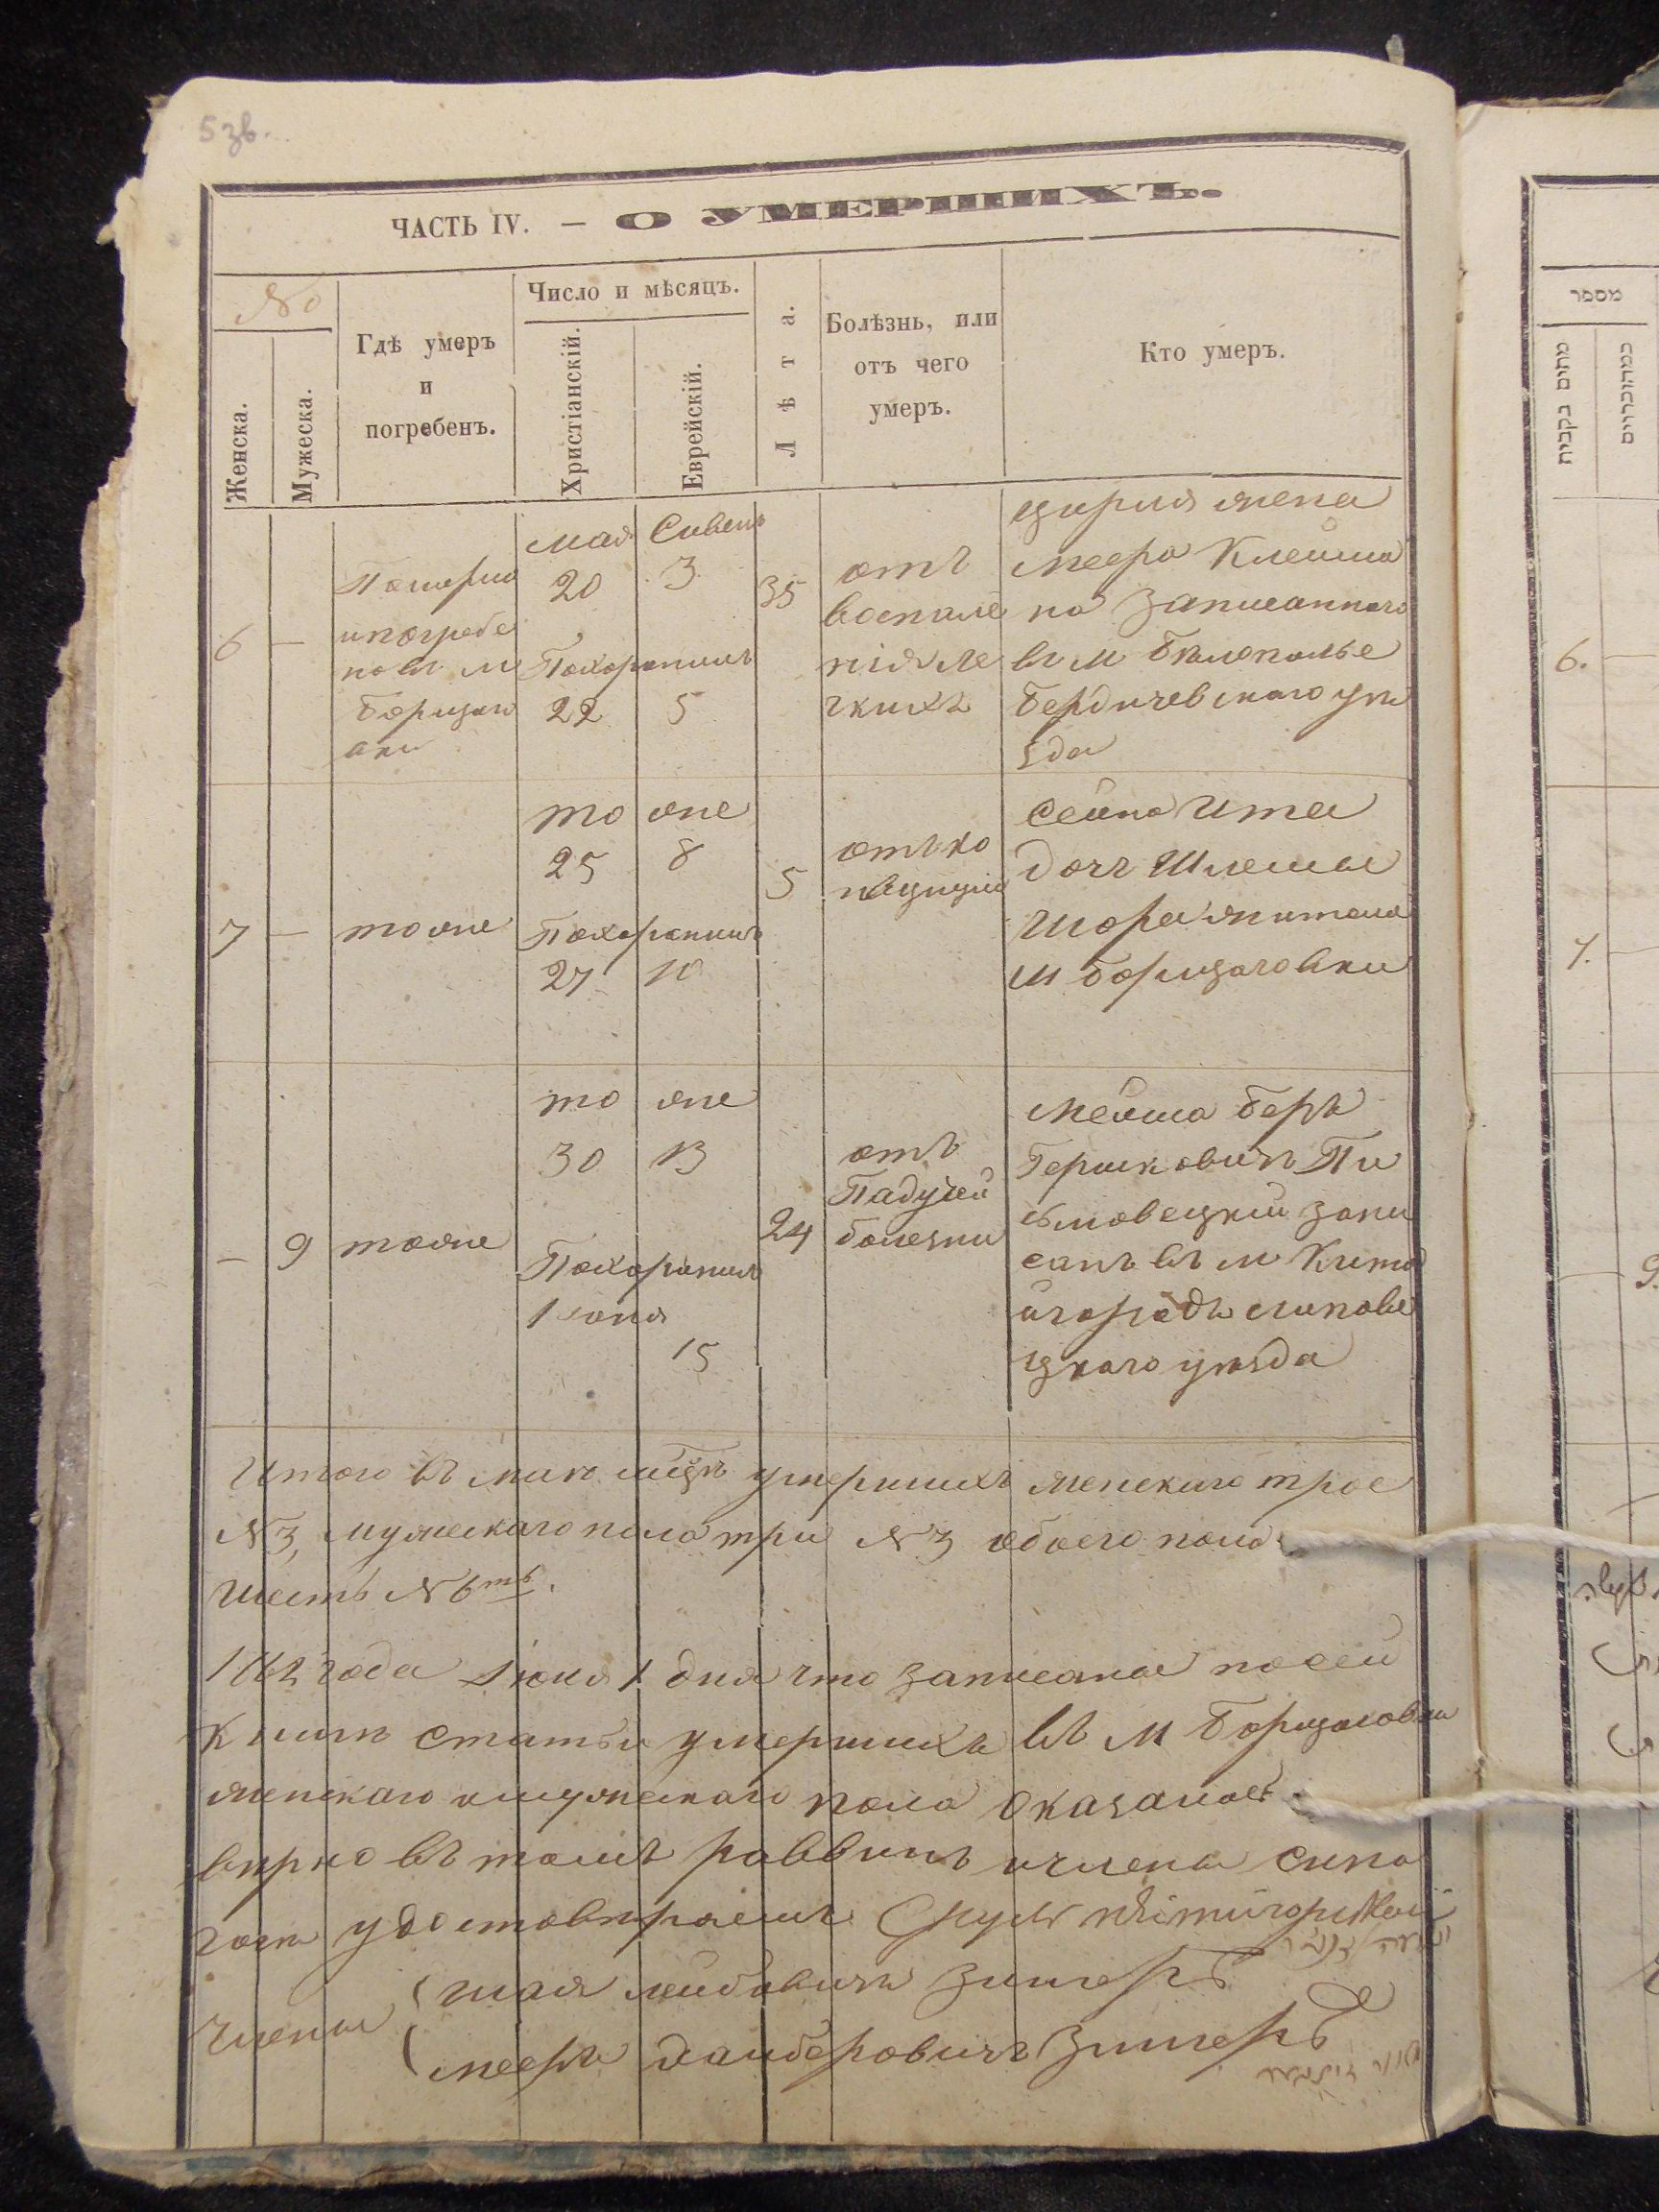 5 зв.
ЧАСТЬ IV. — О УМЕРШИХЪ.
№
Женска.
Мужеска.
Гдѣ умеръ
и
погребенъ.
Число и мѣсяцъ.
Христіанскій.
Еврейскій.
Лѣта.
Болѣзнь, или
отъ чего
умеръ.
Кто умеръ.
6 —
Померла
и погребе
на въ м
Борщаго
вки
мая Сивень
20 3
Похоронит
22 5
35
отъ
воспале
нія ле
гкихъ
жена
Меера Клейма
на Записаннаго
въ м Бѣлополье
Бердичевскаго уѣ
зда
7 —
тоже
то же
25 8
Похоронит
27 10
5
отъ ко
Сейна Ита
дочъ Шлемы
жителя
м Борщаговки
— 9
тоже
то же
30 13
Похоронит
1 юня
15
24
отъ
Падучей
болезни
Мейша Беръ
Гершковичъ
запи
санъ въ м Кита
йгородъ Липове
цкаго уѣзда
Итого въ маю умершихъ женскаго трое
№ 3, мужескаго пола три № 3 обоего пола
шесть № 6ть.
года юня 1 дня что записаные по сей
книгѣ статьи умершихъ въ м Борщаговки
женскаго и мужескаго пола оказалось
вѣрно въ томъ раввинъ и члены сина
гоги удостовѣряемъ
Члены
Шая Лейбовичъ Зингеръ
Мееръ Зингеръ
מספר
6.
7.
9.